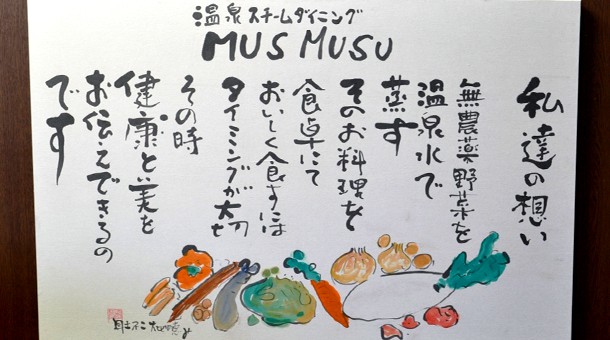 温泉スチームダイニング
MUS MUSU
私達の想い
無農薬野菜を
温泉水で
蒸す
そのお料理を
食卓にて
おいしく食すには
タイミングが大切
その時
健康と美を
お伝えできるの
です